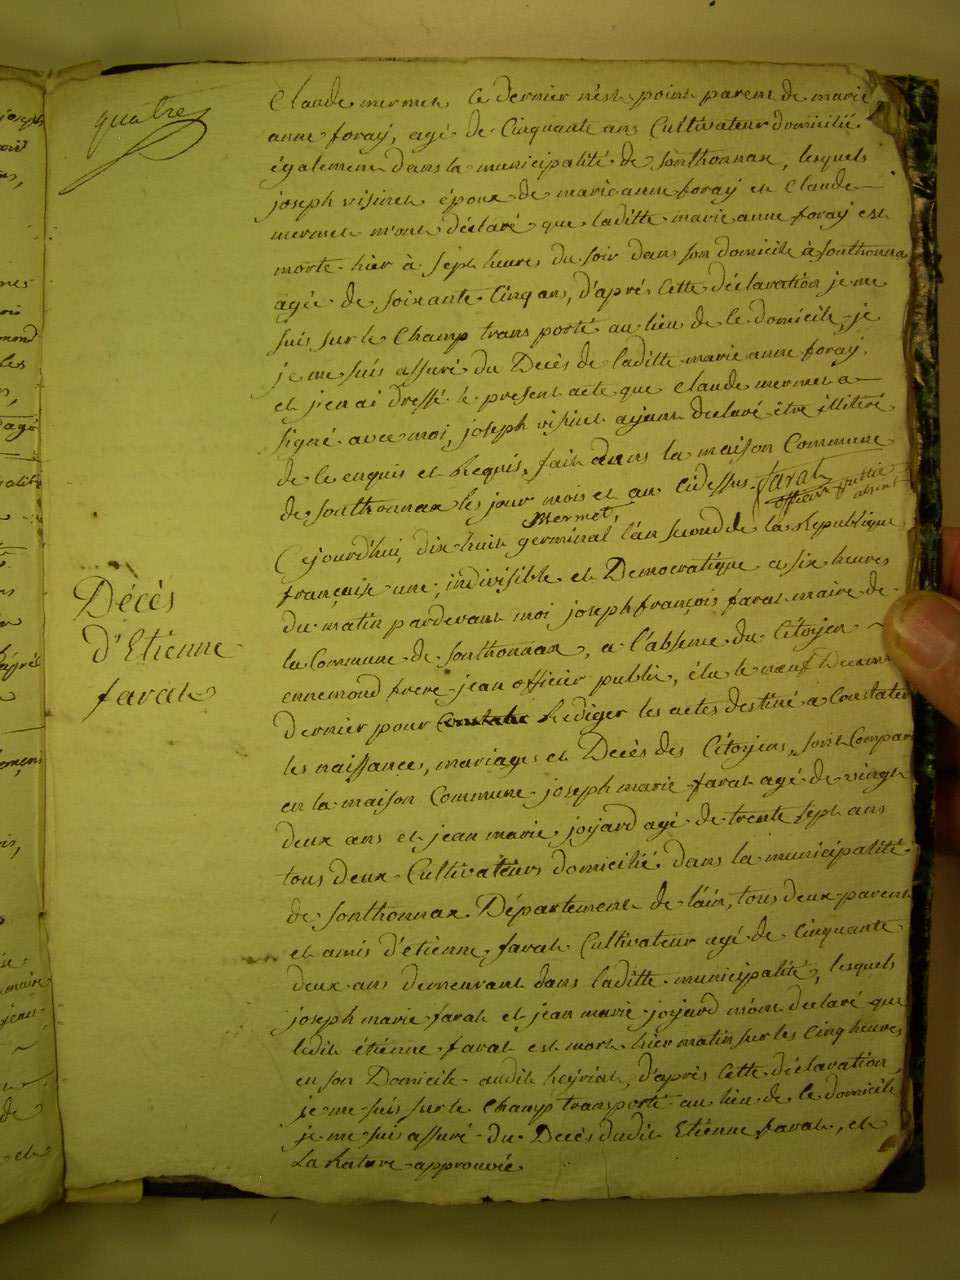 quatre
Claude mermet ce dernier n'est point parent de marie
anne foray, agé de Cinquante ans Cultivateur domicilié
également dans la municipalité de sonthonnax, lesquels
joseph visinet époux de marie anne foray et Claude
mermet m'ont déclaré que laditte marie anne foray est
morte hier à sept heures du soir dans son domicile à sonthonna
agée de soixante Cinq ans, d'après cette déclaration je me
suis sur le Champ transporté au lieu de ce domicile, je
je me suis assuré du Decès de laditte marie anne foray,
et j'en ai dressé le present acte que Claude mermet a
signé avec moi, joseph visinet ayant declaré être illitéré
de ce enquis et Requis, fait dans la maison Commune
de sonthonnax les jour mois et an cidessus. farat
officier public
absent
Mermet,
Cejourd'hui, dix huit germinal l'an second de la Republique
françaisse une, indivisible et Democratique a six heures
du matin pardevant moi joseph françois farat maire de
la Commune de sonthonnax, a l'absence du Citoyen
ennemond frere jean officier public, élu le neuf Decem
dernier pour Constater Rediger les actes destiné a Constater
les naissances, mariages et Decès des Citoyens, sont Compar
en la maison Commune joseph marie farat agé de vingt
deux ans et jean marie joyard agé de trente sept ans
tous deux Cultivateurs domicilié dans la municipalité
de sonthonnax Département de l'ain, tous deux parent
et amis d'etienne farat Cultivateur agé de Cinquante
deux ans demeurant dans laditte municipalité, lesquels
joseph marie farat et jean marie joyard m'ont declaré que
ledit étienne farat est mort hier matin sur les Cinq heures
en son Domicile audit heyriat, d'après Cette déclaration
je me suis sur le Champ transporté au lieu de ce domicile
je me sui assuré du Decès dudit Etiénne farat, et
La Rature approuvée
Décès
d'Etienne
farat